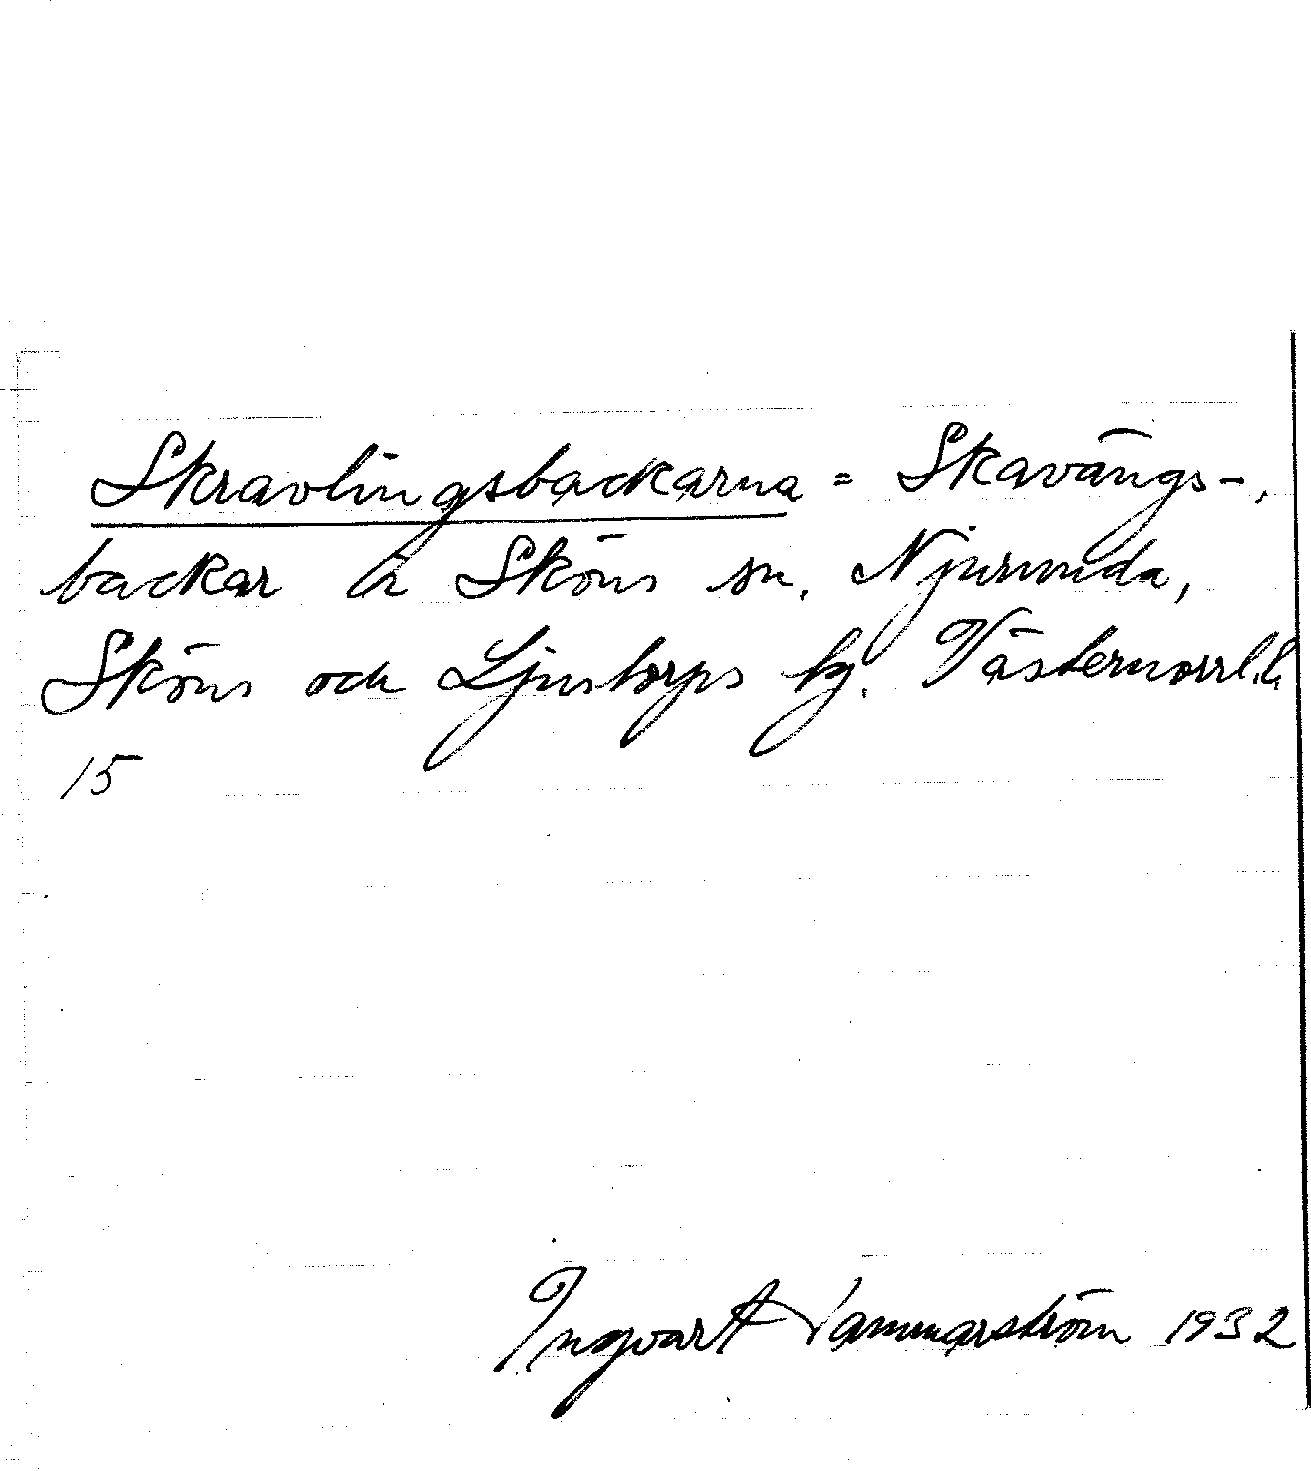 Skravlingsbackarna = Skavängs-,
backar i Sköns sn, Njurunda,
Sköns och Ljustorps tg. Västernorrl. l.
15
Ingvart Hammarström 1932